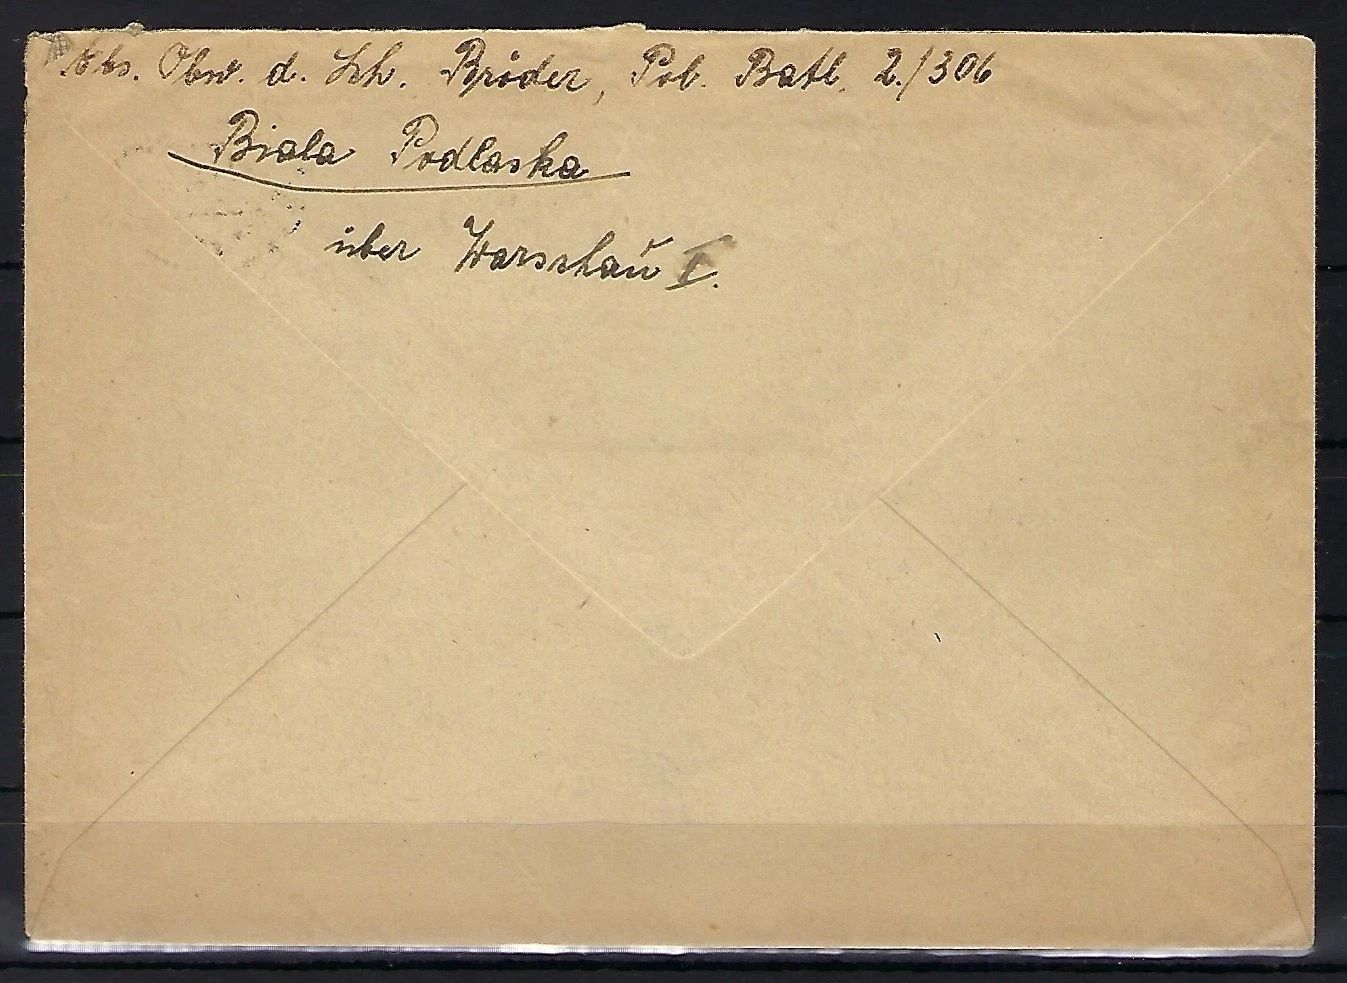 Abs. Obw. d. Sch. Bröder, Pol. Batl. 2./306
Biala Podlaska
über Warschau I.